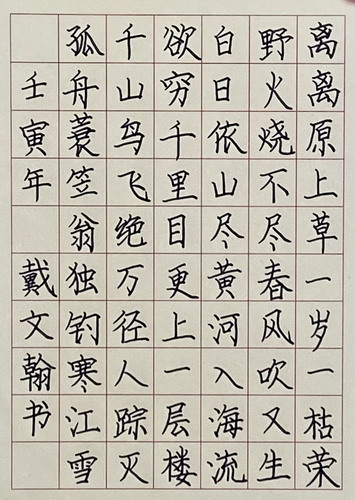 离离原上草一岁一枯荣
野火烧不尽春风吹又生
白日依山尽黄河入海流
欲穷千里目更上一层楼
千山鸟飞绝万径人踪灭
孤舟蓑笠翁独钓寒江雪
壬寅年戴文翰书